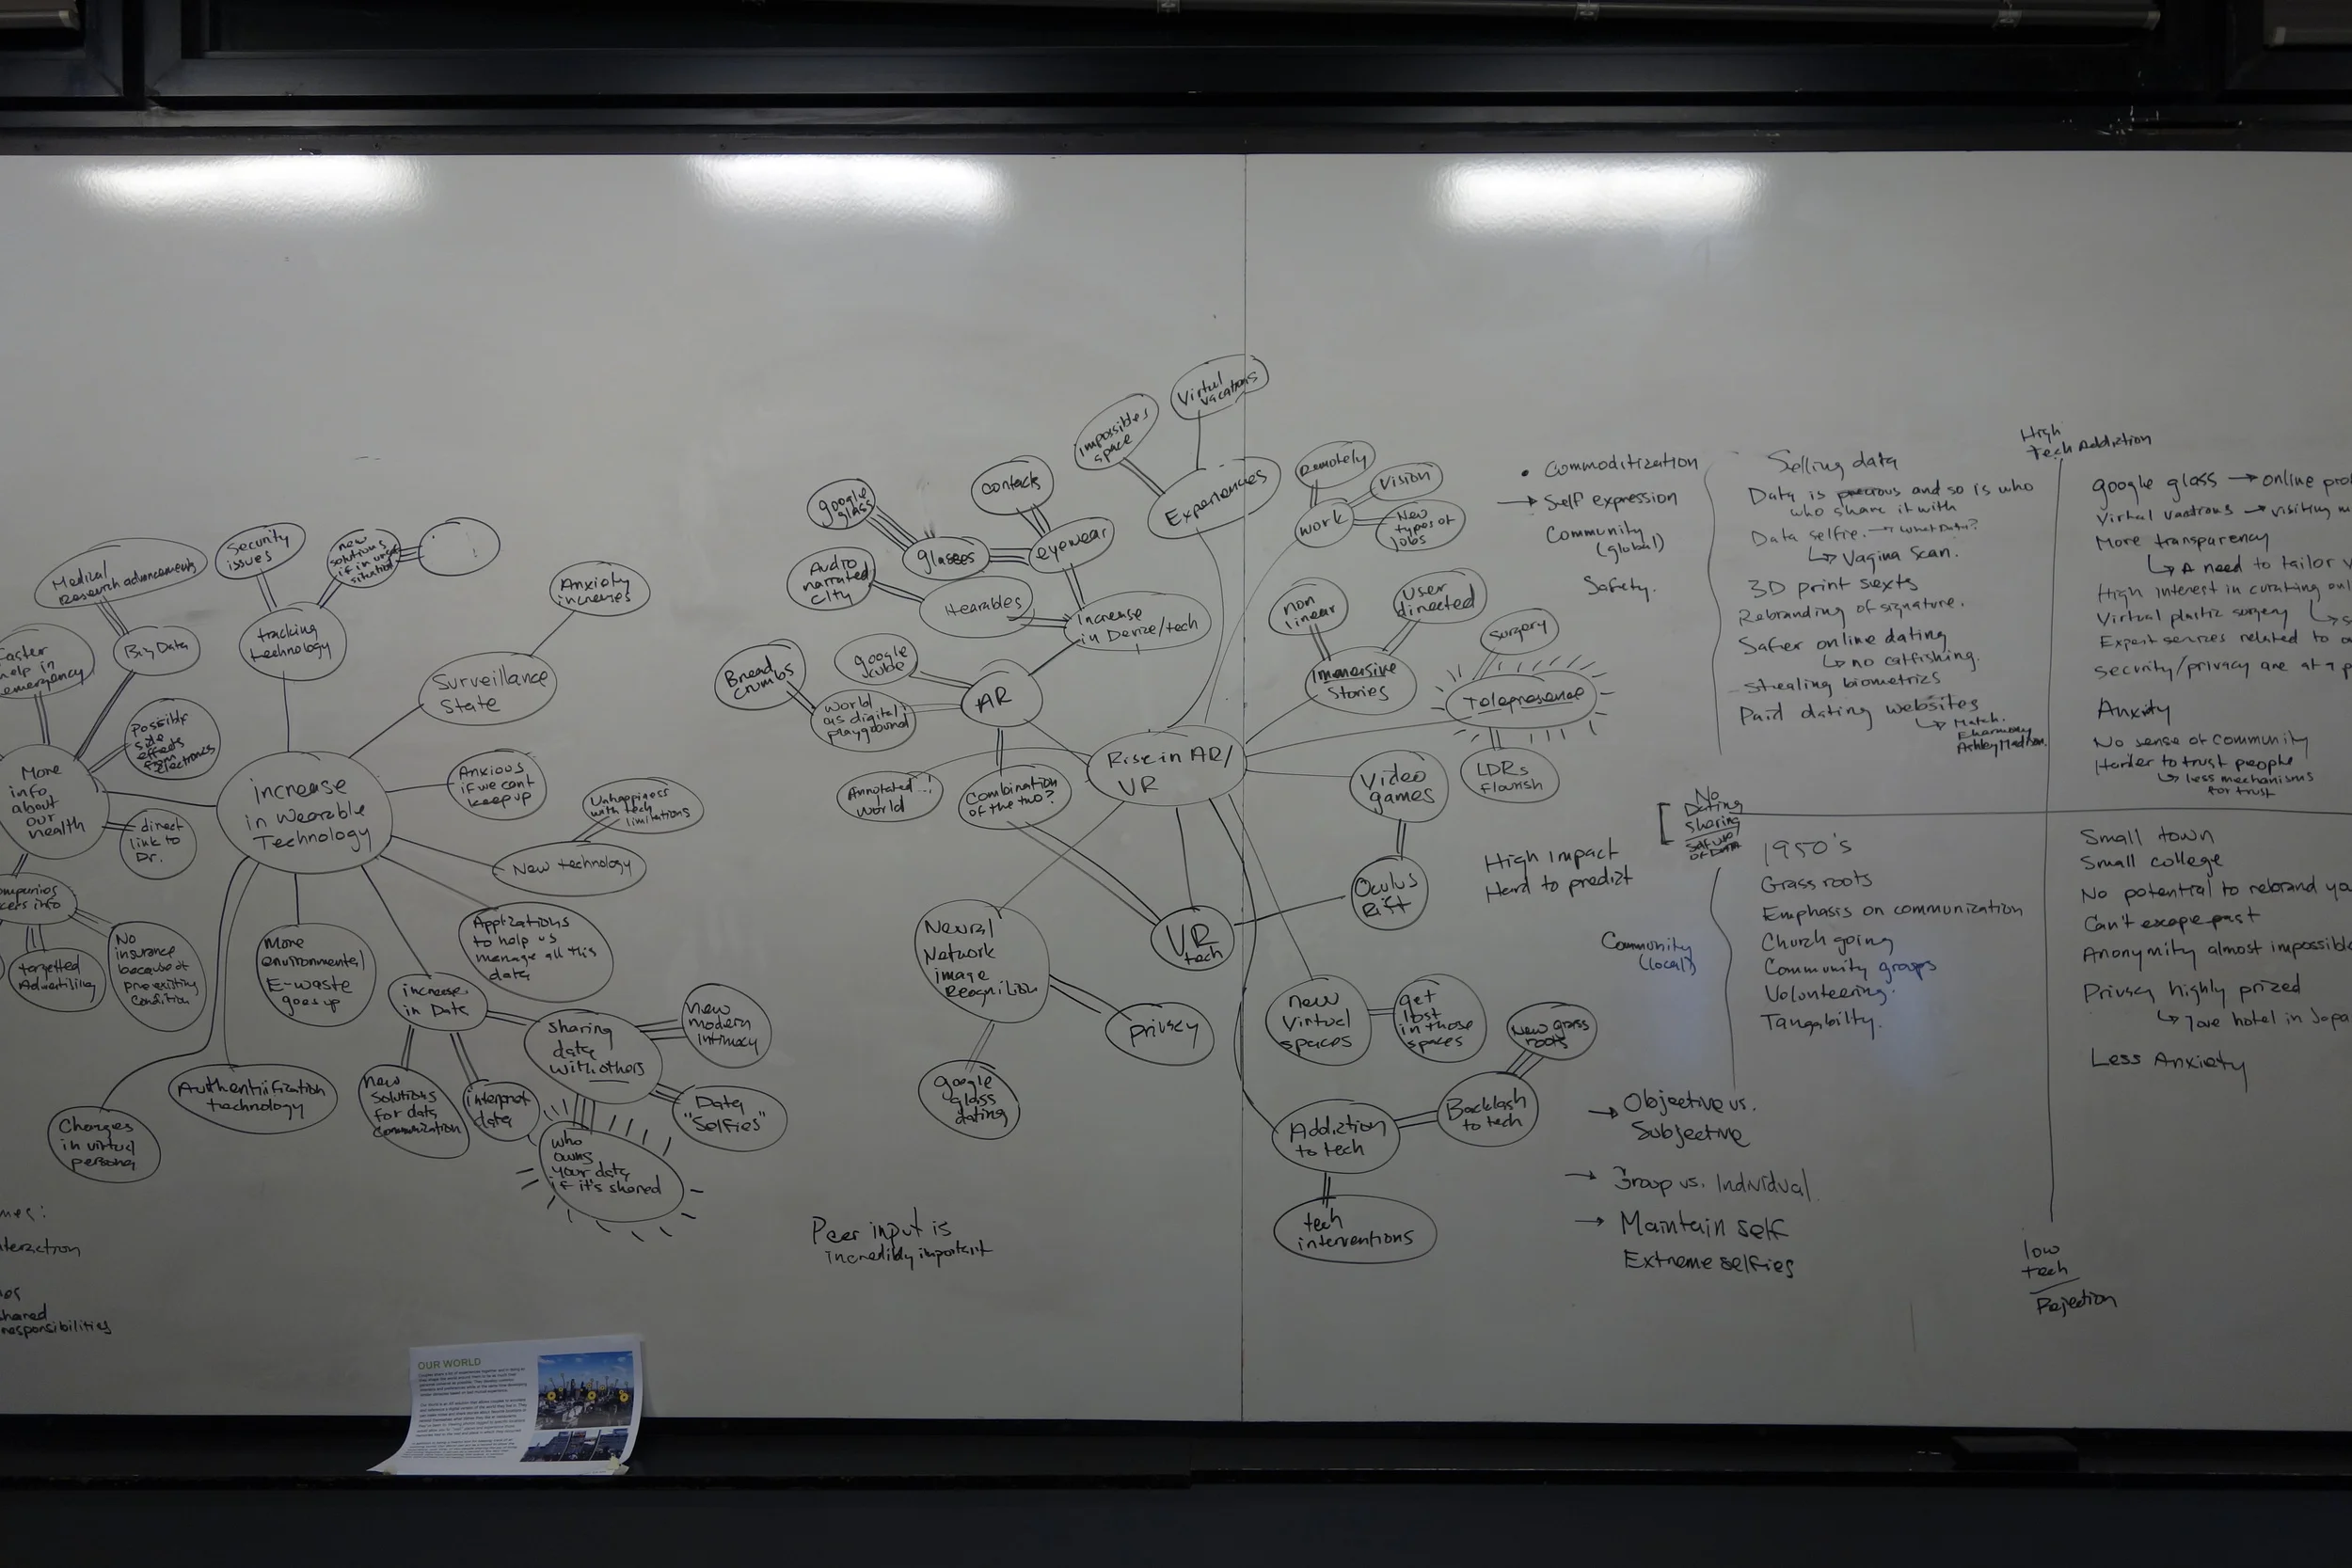 Medical
Research advancements
Security
issues
new
solutions
if in unsafe
situation
Faster
help in
emergency
Big Data
tracking
technology
Anxiety
increases
Surveillance
State
Possible
side
effects
from
electronics
More
info
about
our
health
increase
in Wearable
Technology
Anxious
if we cant
keep up
Unhappiness
with tech
limitations
direct
link to
Dr.
New technology
No
insurance
because of
pre existing
condition
targetted
Advertising
More
environmental
E-waste
goes up
Applications
to help us
manage all this
data
increase
in Data
sharing
data
with others
new
modern
intimacy
Authentification
technology
Changes
in virtual
persona
new
solutions
for data
communication
interpret
data
Data
"Selfies"
who
owns
your data
if it's shared
teraction
hared
responsibilities
OUR WORLD
Virtul
vacations
impossibles
space
Experiences
contacts
google
glass
glasses
eyewear
Audio
narrated
city
Hearables
Increase
in Device/tech
Bread
crumbs
google
cube
world
as digital
playground
AR
Annotated
world
Combination
of the two?
Rise in AR/
VR
Remotely
vision
work
New
types of
jobs
non
linear
user
directed
Immersive
Stories
surgery
Telepresence
LDRs
flourish
Video
games
Oculus
Rift
VR
tech
Neural
Network
image
Recognition
privacy
google
glass
dating
new
Virtual
spaces
get
lost
in those
spaces
New grass
roots
Addiction
to tech
Backlash
to tech
tech
interventions
Peer input is
incredibly important
• Commoditization
→ Self expression
Community
(global)
Safety.
High Impact
Hard to predict
Community
(local)
→ Objective vs.
Subjective
→ Group vs. Individual
→ Maintain self
Extreme selfies
Selling data
Data is precious and so is who
who share it with
Data selfie. → what data?
↳ Vagina Scan.
3D print sexts
Rebranding of signature.
Safer online dating
↳ no catfishing.
Stealing biometrics
Paid dating websites
↳ Match.
Eharmony
Ashley Madison.
No
Dating
sharing
of Data
1950's
Grass roots
Emphasis on communication
Church going
Community groups
Volunteering.
Tangabilty.
High
Tech Addiction
google glass → online
Virtual → visiting
More transparency
↳ A need to tailor
High interest in curating
Virtual plastic surgery
Expert services related to
Security/privacy are at a
Anxity
No sense of community
Harder to trust people
↳ less mechanisms
for trust
Small town
Small college
No potential to rebrand
Can't escape past
Anonymity almost impossible
Privacy highly prized
↳ love hotel in
Less Anxiety
low
tech
Rejection